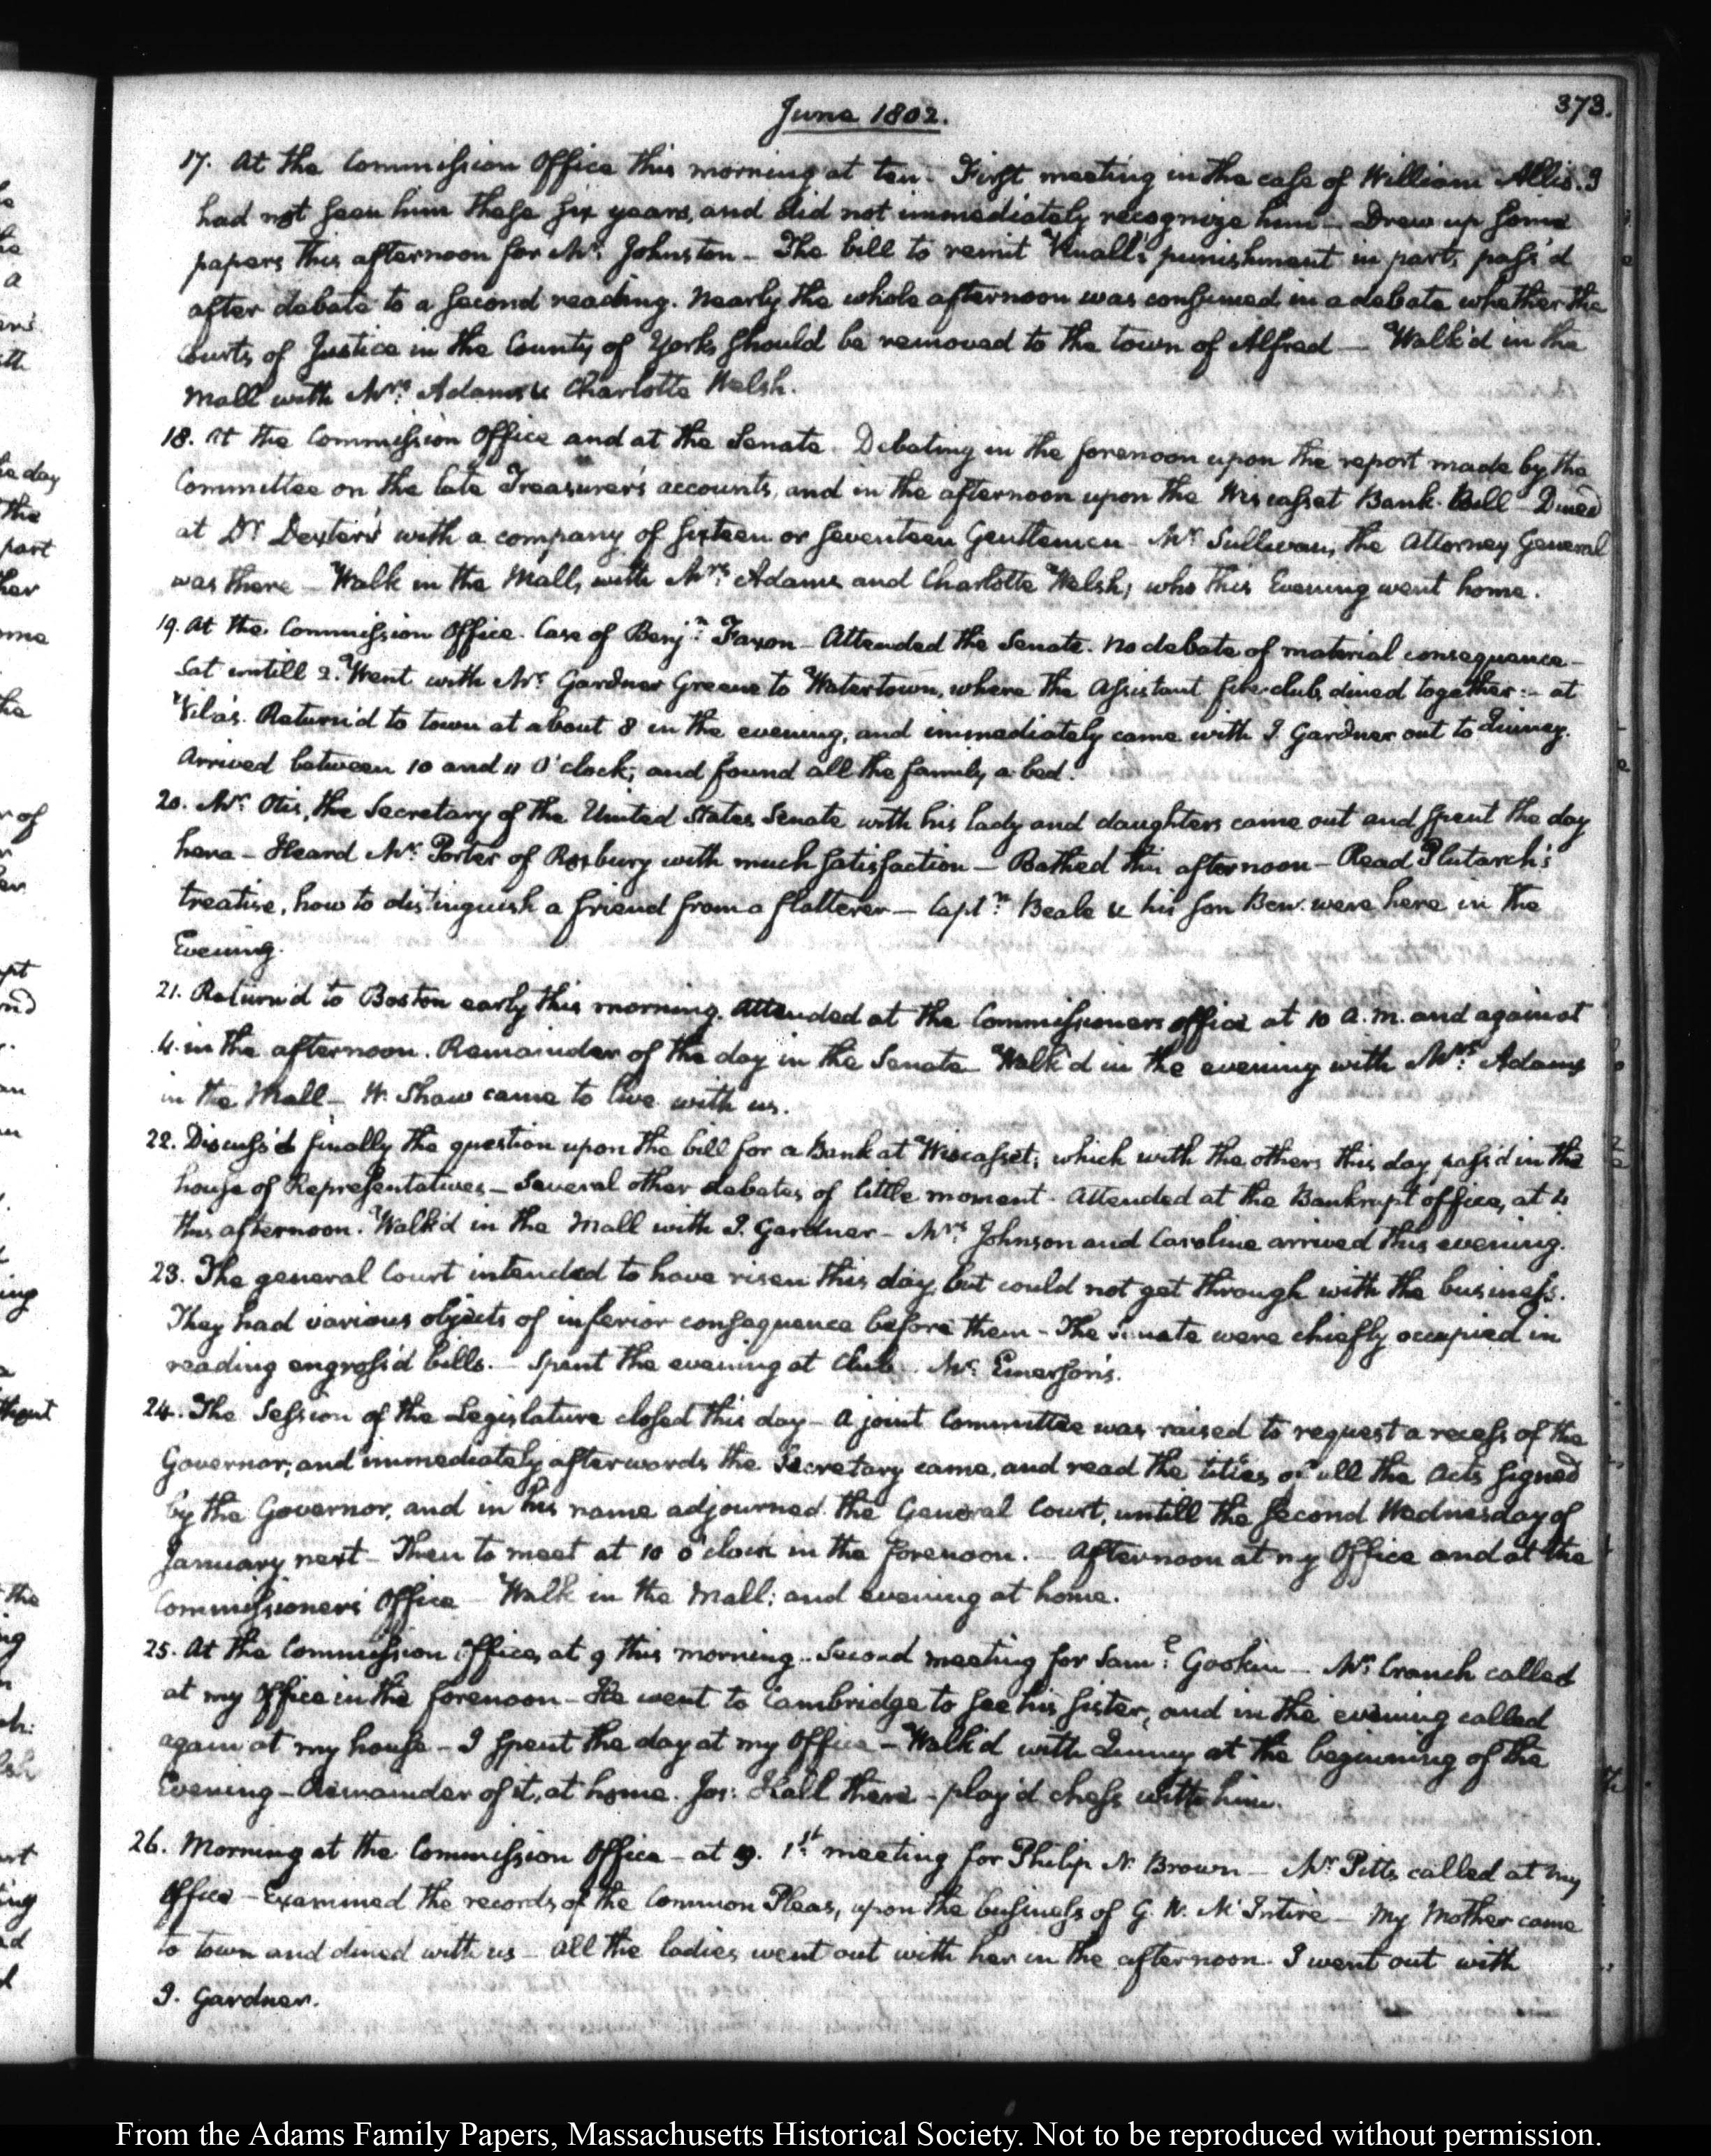 June 1802.
373.
17. At the Commission Office this morning at ten. First meeting in the case of William Allis. I
had not seen him these six years, and did not immediately recognize him — Drew up some
papers this afternoon for Mr. Johnston — The bill to remit punishment in part, pass'd
after debate to a second reading. Nearly the whole afternoon was consumed in a debate whether the
Courts of Justice in the County of York, should be removed to the town of Alfred — Walk'd in the
Mall with Mrs. Adams & Charlotte Welsh.
18. At the Commission Office and at the Senate. Debating in the forenoon upon the report made by the
Committee on the late Treasurer's accounts, and in the afternoon upon the Wiscasset Bank-Bill — Dined
at Dr. Dexter's with a company of sixteen or seventeen Gentlemen — Mr. Sullivan, the Attorney General
was there — Walk in the Mall, with Mrs. Adams and Charlotte Welsh, who this Evening went home.
19. At the Commission Office. Case of Benjn. Faxon — Attended the Senate. No debate of material consequence —
Sat untill 2. Went with Mr. Gardner Greene to Watertown, where the Assistant fire-club, dined together: — at
Vila's. Return'd to town at about 8 in the evening, and immediately came with I. Gardner out to Quincy.
Arrived between 10 and 11 O'clock, and found all the family a bed.
20. Mr. Otis, the Secretary of the United States Senate with his lady and daughters came out and spent the day
here — Heard Mr. Porter of Roxbury with much satisfaction — Bathed this afternoon — Read Plutarch's
treatise, how to distinguish a friend from a flatterer — Captn. Beale & his son Ben. were here in the
Evening.
21. Return'd to Boston early this morning. Attended at the Commissioners office at 10 A.M. and again at
4. in the afternoon. Remainder of the day in the Senate — Walk'd in the evening with Mrs. Adams
in the Mall — W. Shaw came to live with us.
22. Discuss'd finally the question upon the bill for a Bank at Wiscasset; which with the others this day pass'd in the
house of Representatives — Several other debates of little moment. Attended at the Bankrupt office, at 4
this afternoon. Walk'd in the Mall with I. Gardner — Mrs. Johnson and Caroline arrived this evening.
23. The general Court intended to have risen this day, but could not get through with the business.
They had various objects of inferior consequence before them — The Senate were chiefly occupied in
reading engross'd bills. — Spent the evening at Club. Mr. Emerson's.
24. The Session of the Legislature closed this day — A joint Committee was raised to request a recess of the
Governor; and immediately afterwards the Secretary came, and read the titles of all the Acts signed
by the Governor, and in his name adjourned the General Court, untill the second Wednesday of
January next — Then to meet at 10 o'clock in the forenoon. — Afternoon at my Office and at the
Commissioners Office — Walk in the Mall; and evening at home.
25. At the Commission Office, at 9 this morning. Second meeting for Saml. Gookin — Mr. Cranch called
at my Office in the forenoon — He went to Cambridge to see his sister, and in the evening called
again at my house — I spent the day at my Office — Walk'd with Quincy at the beginning of the
Evening — Remainder of it, at home. Jos: Hall there — play'd chess with him.
26. Morning at the Commission Office — at 9. 1st. meeting for Philip N. Brown — Mr. Pitts called at my
Office — Examined the records of the Common Pleas, upon the business of G. W. McIntire — My Mother came
to town and dined with us — All the ladies went out with her in the afternoon. I went out with
I. Gardner.
From the Adams Family Papers, Massachusetts Historical Society. Not to be reproduced without permission.